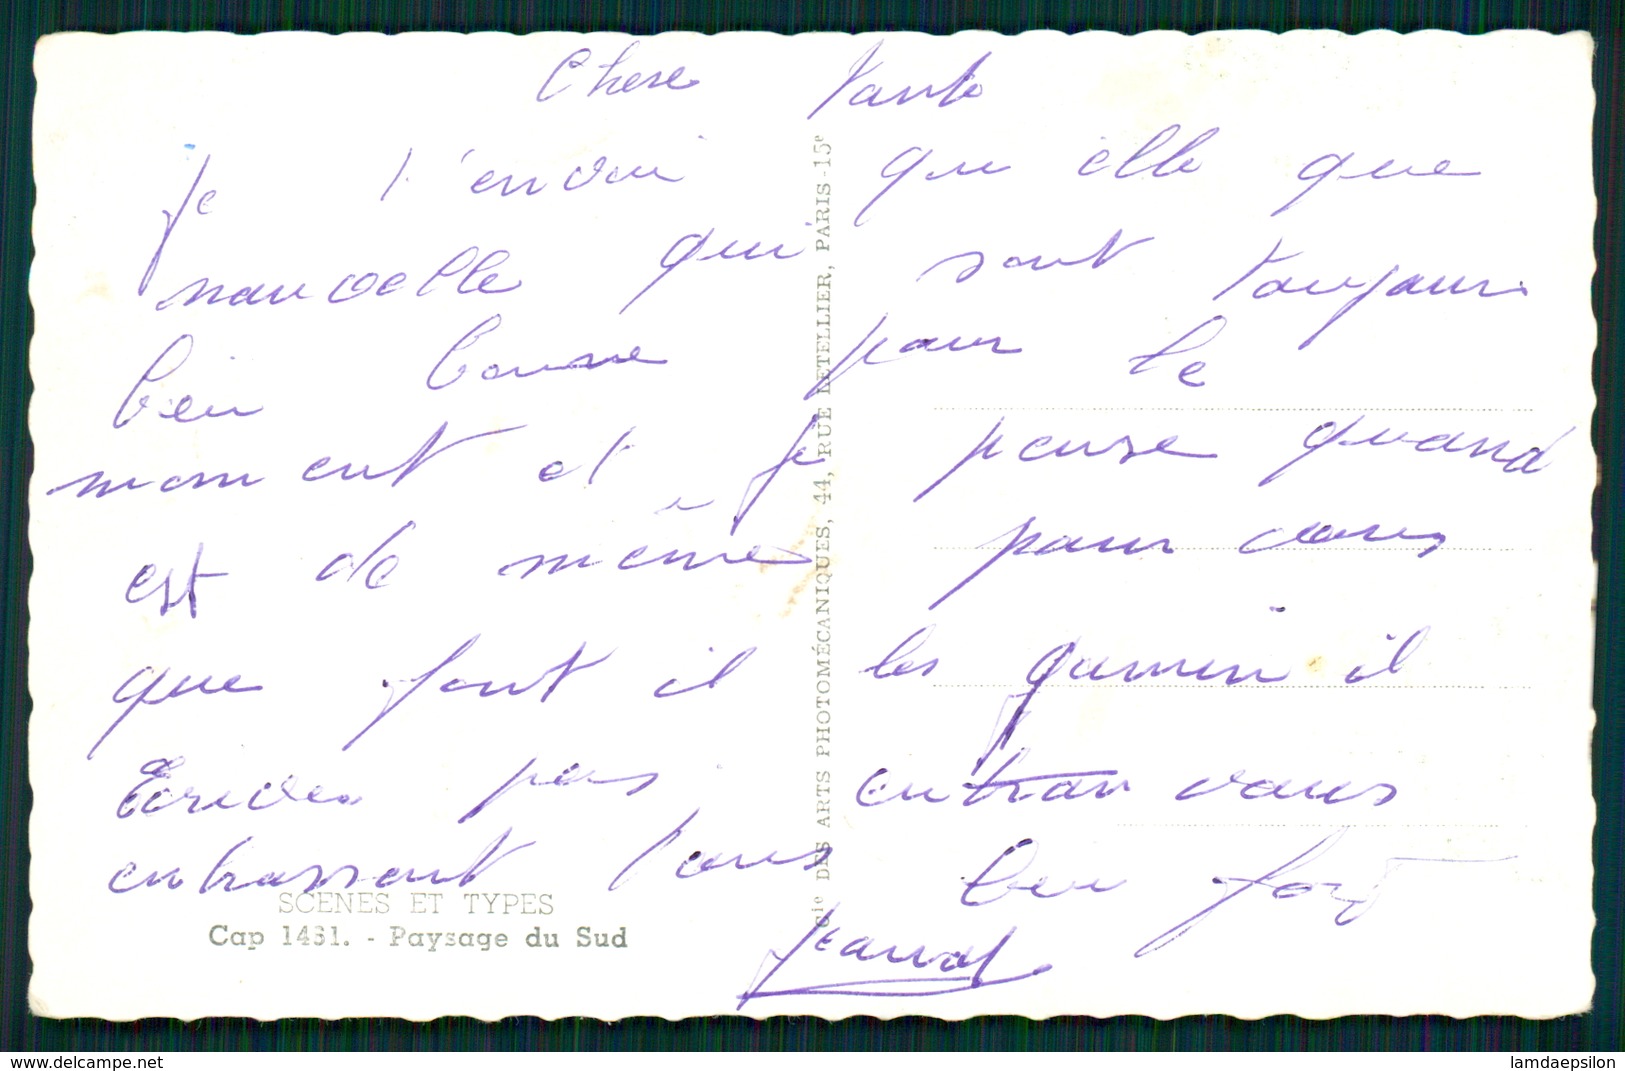 Chere Tante
je t'envoi qu'elle que
nouvelle qui sont toujours
bien bonne pour le
moment et je pense quand
est de même pour vous
que font il les gamin il
Ecrives pas en tran vous
embrassant tous bien fort
SCENES ET TYPES
Cap 1431. - Paysage du Sud
Cie DES ARTS PHOTOMÉCANIQUES, 44, RUE LETELLIER, PARIS-15e
www.delcampe.net
lamdaepsilon